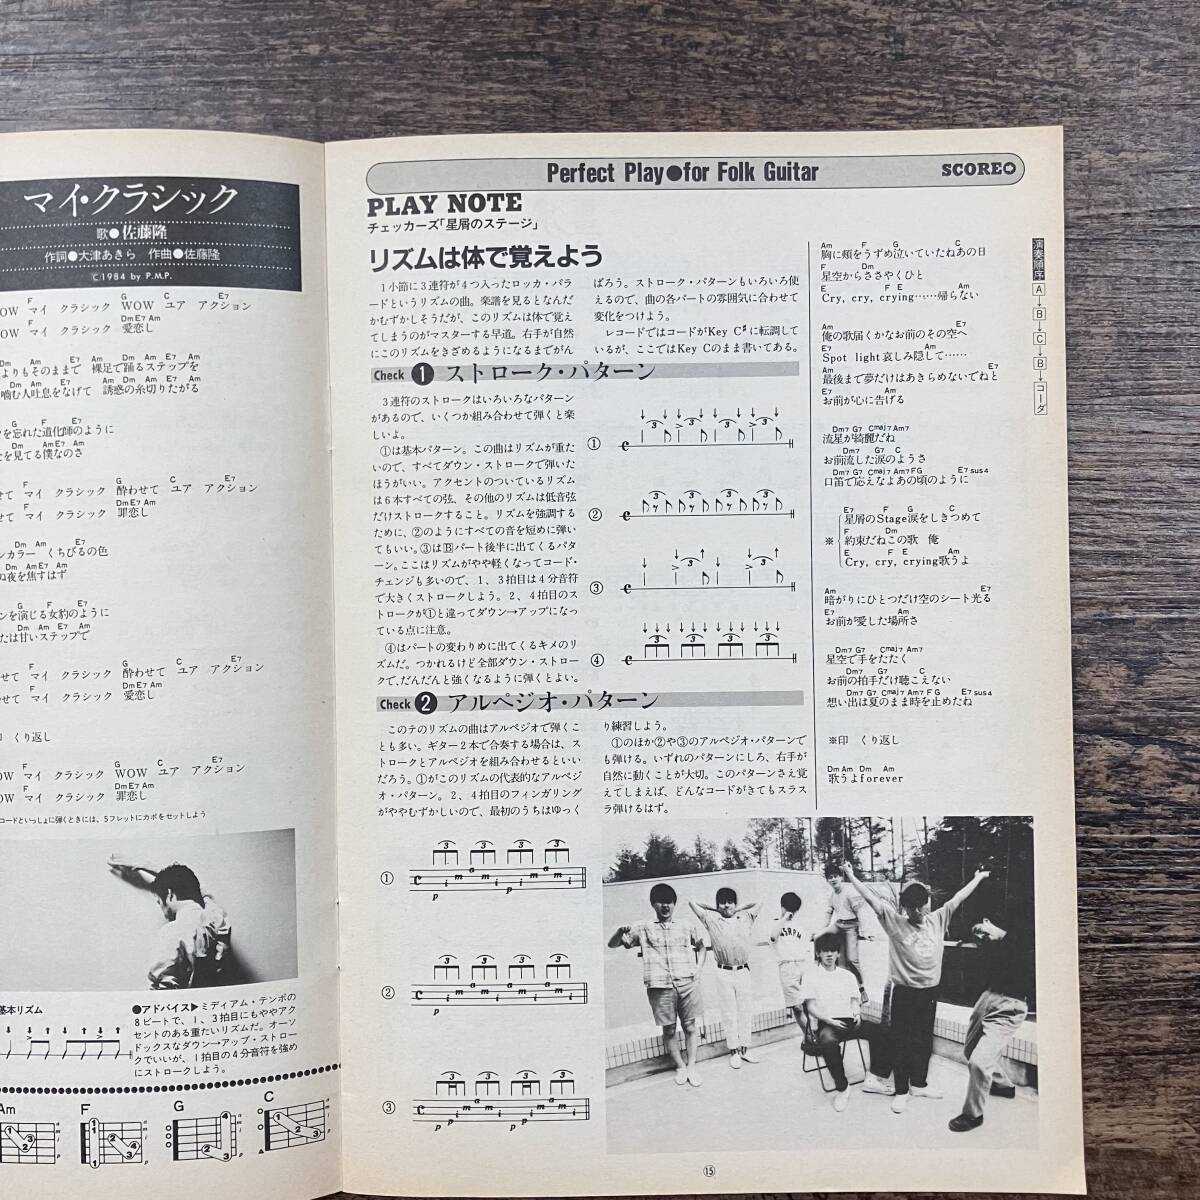 マイ・クラシック
歌●佐藤隆
作詞●大津あきら 作曲●佐藤隆
©1984 by P.M.P.
F G C E7
OW マイ クラシック WOW ユア アクション
F DmE7 Am
OW マイ クラシック 愛恋し
Dm Am E7 Am Dm Am E7 Am
よりもそのままで 裸足で踊るステップを
Dm Am E7 Am Dm Am E7 Am
噛む人吐息をなげて 誘惑の糸切りたがる
G F E7
を忘れた道化師のように
Dm AmE7 Am
を見てる僕なのさ
F G C E7
せて マイ クラシック 酔わせて ユア アクション
F DmE7 Am
せて マイ クラシック 罪恋し
Dm Am E7 Am
ンカラー くちびるの色
Dm AmE7 Am
ぬ夜を焦すはず
G F E7
ンを演じる女豹のように
Dm Am E7 Am
たは甘いステップで
F G C E7
せて マイ クラシック 酔わせて ユア アクション
F DmE7 Am
せて マイ クラシック 愛恋し
印 くり返し
F G C E7
OW マイ クラシック WOW ユア アクション
F DmE7 Am
OW マイ クラシック 罪恋し
コードといっしょに弾くときには、5フレットにカポをセットしよう
基本リズム
●アドバイス▶ミディアム・テンポの
8ビートで、1、3拍目にもややアク
セントのある重たいリズムだ。オーソ
ドックスなダウン→アップ・ストロー
クでいいが、1拍目の4分音符を強め
にストロークしよう。
Am F G C
Perfect Play●for Folk Guitar
SCORE
PLAY NOTE
チェッカーズ「星屑のステージ」
リズムは体で覚えよう
1小節に3連符が4つ入ったロッカ・バラ
ードというリズムの曲。楽譜を見るとなんだ
かむずかしそうだが、このリズムは体で覚え
てしまうのがマスターする早道。右手が自然
にこのリズムをきざめるようになるまでがん
ばろう。ストローク・パターンもいろいろ使
えるので、曲の各パートの雰囲気に合わせて
変化をつけよう。
レコードではコードがKey C♯に転調して
いるが、ここではKey Cのまま書いてある。
Check 1 ストローク・パターン
3連符のストロークはいろいろなパターン
があるので、いくつか組み合わせて弾くと楽
しいよ。
①は基本パターン。この曲はリズムが重た
いので、すべてダウン・ストロークで弾いた
ほうがいい。アクセントのついているリズム
は6本すべての弦、その他のリズムは低音弦
だけストロークすること。リズムを強調する
ために、②のようにすべての音を短めに弾い
てもいい。③はBパート後半に出てくるパタ
ーン。ここはリズムがやや軽くなってコード・
チェンジも多いので、1、3拍目は4分音符
で大きくストロークしよう。2、4拍目のス
トロークが①と違ってダウン→アップになっ
ている点に注意。
④はパートの変わりめに出てくるキメのリ
ズムだ。つかれるけど全部ダウン・ストロー
クで、だんだんと強くなるように弾くとよい。
①
②
③
④
Check 2 アルペジオ・パターン
このテのリズムの曲はアルペジオで弾くこ
とも多い。ギター2本で合奏する場合は、ス
トロークとアルペジオを組み合わせるといい
だろう。①がこのリズムの代表的なアルペジ
オ・パターン。2、4拍目のフィンガリング
がややむずかしいので、最初のうちはゆっく
り練習しよう。
①のほか②や③のアルペジオ・パターンで
も弾ける。いずれのパターンにしろ、右手が
自然に動くことが大切。このパターンさえ覚
えてしまえば、どんなコードがきてもスラス
ラ弾けるはず。
①
②
③
Am F G C
胸に頬をうずめ泣いていたねあの日
F Dm
星空からささやくひと
E F E Am
Cry, cry, crying……帰らない
Am E7
俺の歌届くかなお前のその空へ
E7 Am
Spot light哀しみ隠して……
Am E7
最後まで夢だけはあきらめないでねと
E7 Am
お前が心に告げる
Dm7 G7 Cmaj7 Am7
流星が綺麗だね
Dm7 G7 C
お前流した涙のようさ
Dm7 G7 Cmaj7 Am7 F G E7sus4
口笛で応えなよあの頃のように
E7 F G C
星屑のStage涙をしきつめて
F Dm
※約束だねこの歌 俺
E F E Am
Cry, cry, crying歌うよ
Am E7
暗がりにひとつだけ空のシート光る
E7 Am
お前が愛した場所さ
Dm7 G7 Cmaj7 Am7
星空で手をたたく
Dm7 G7 C
お前の拍手だけ聴こえない
Dm7 G7 Cmaj7 Am7 F G E7sus4
想い出は夏のまま時を止めたね
※印 くり返し
Dm Am Dm Am
歌うよforever
演奏順序 A→B→C→B→コーダ
⑮